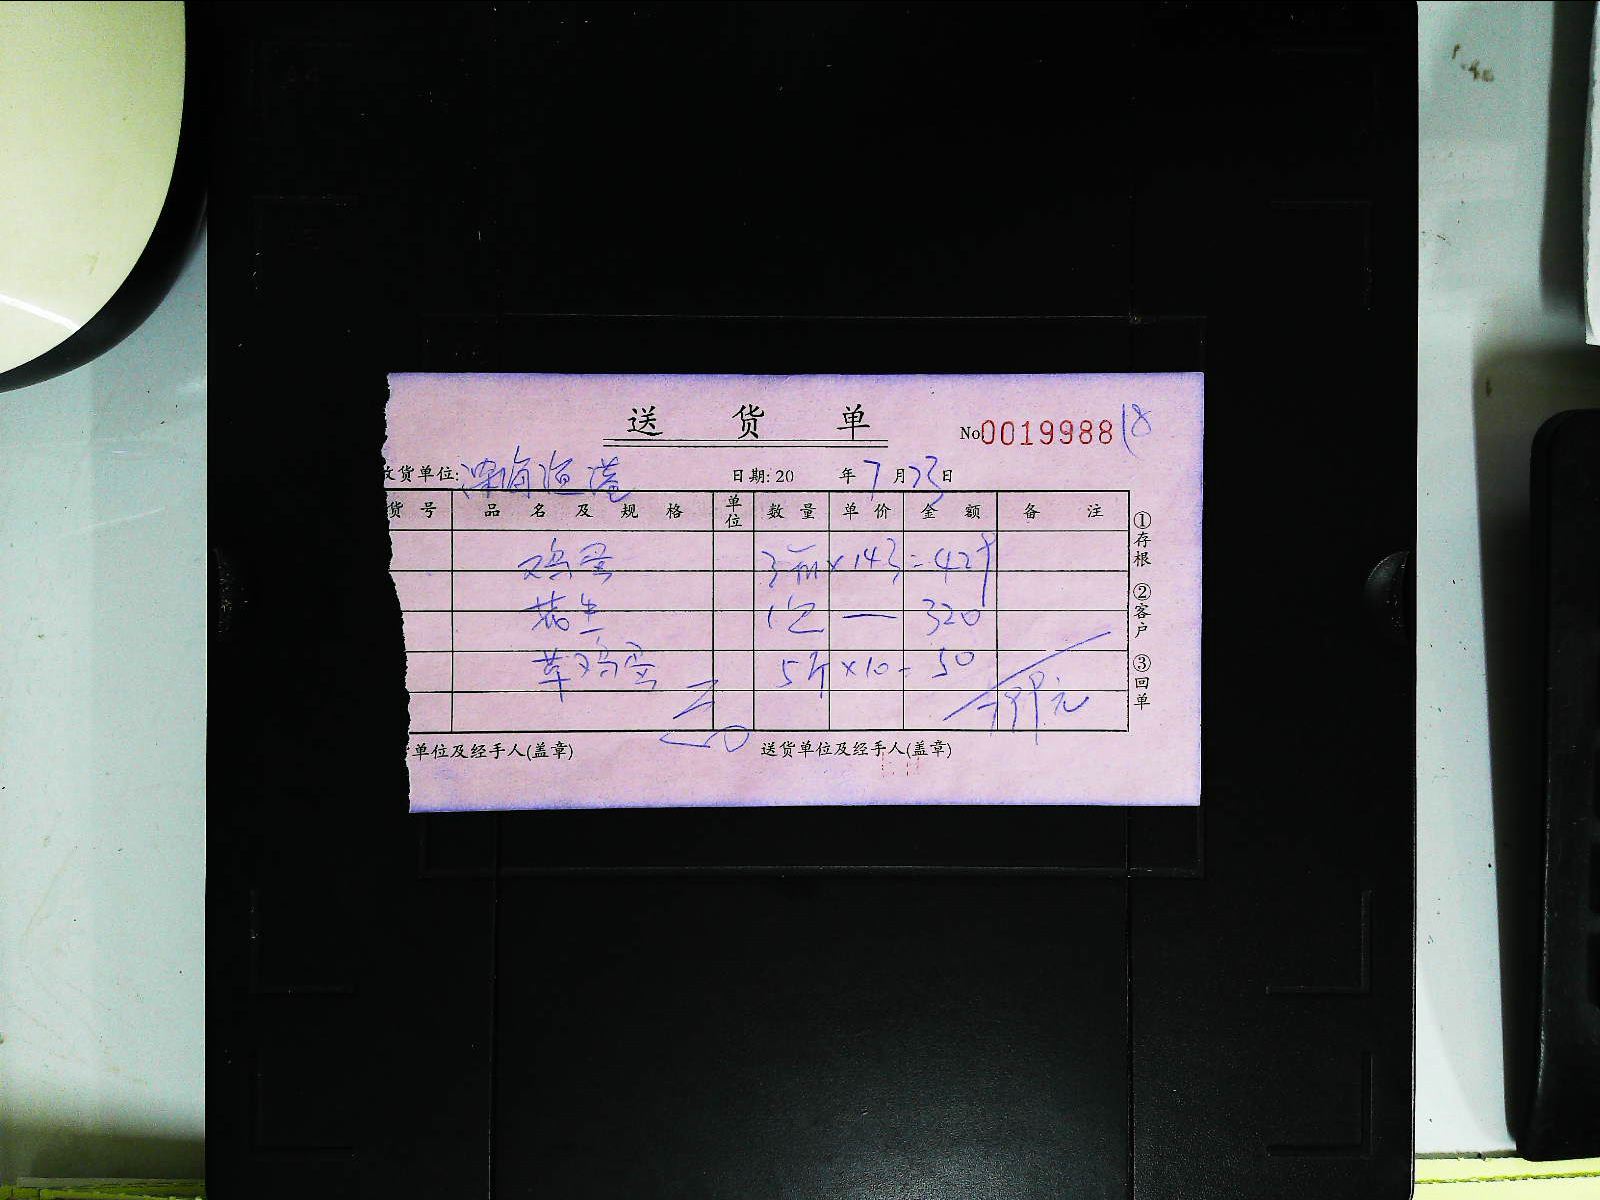 送 货 单
No0019988 18
收货单位: 深海渔港 日期: 20 年 7 月 23 日
货 号 品 名 及 规 格 单位 数 量 单 价 金 额 备 注
鸡蛋 3箱 × 143 = 429
花生 1包 — 320
草鸡蛋 5斤 × 10 = 50
799元
单位及经手人(盖章) 送货单位及经手人(盖章)
①存根 ②客户 ③回单